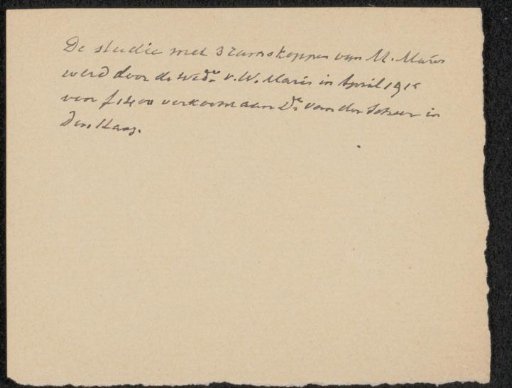 De studie met 3 ramskoppen van M. Maris
werd door de wede. v. W. Maris in April 1915
voor f 1400 verkocht aan Dr. van der Scheer in
Den Haag.